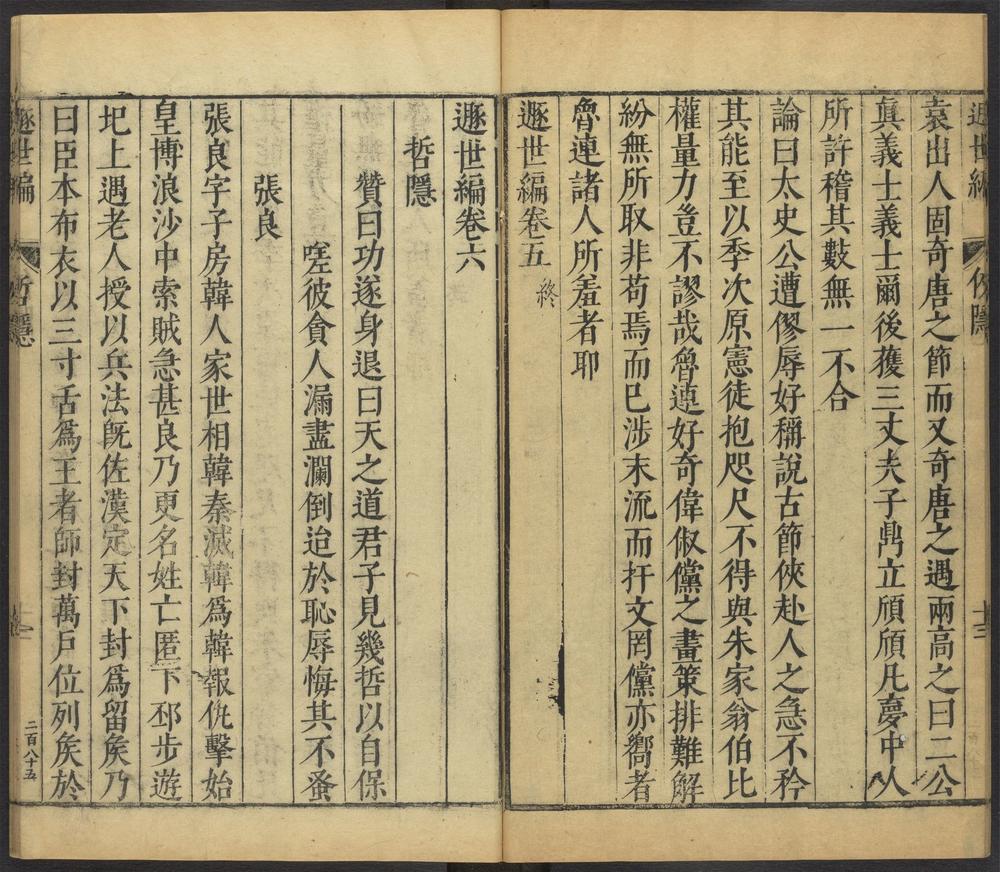 遯世編 俠隱 十三
袁出人固奇唐之節而又奇唐之遇兩高之曰二公
眞義士義士爾後獲三丈夫子鼎立頎頎凡夢中人
所許稽其數無一不合
論曰太史公遭僇辱好稱說古節俠赴人之急不矜
其能至以季次原憲徒抱咫尺不得與朱家翁伯比
權量力豈不謬哉魯連好奇偉俶儻之畫策排難解
紛無所取非苟焉而已涉末流而扞文罔儻亦嚮者
魯連諸人所羞者耶
遯世編卷五 終
遯世編卷六
哲隱
贊曰功遂身退曰天之道君子見幾哲以自保
嗟彼貪人漏盡瀾倒迨於恥辱悔其不蚤
張良
張良字子房韓人家世相韓秦滅韓爲韓報仇擊始
皇博浪沙中索賊急甚良乃更名姓亡匿下邳步遊
圯上遇老人授以兵法旣佐漢定天下封爲留矦乃
曰臣本布衣以三寸舌爲王者師封萬戶位列矦於
遯世編 哲隱 二百八十五